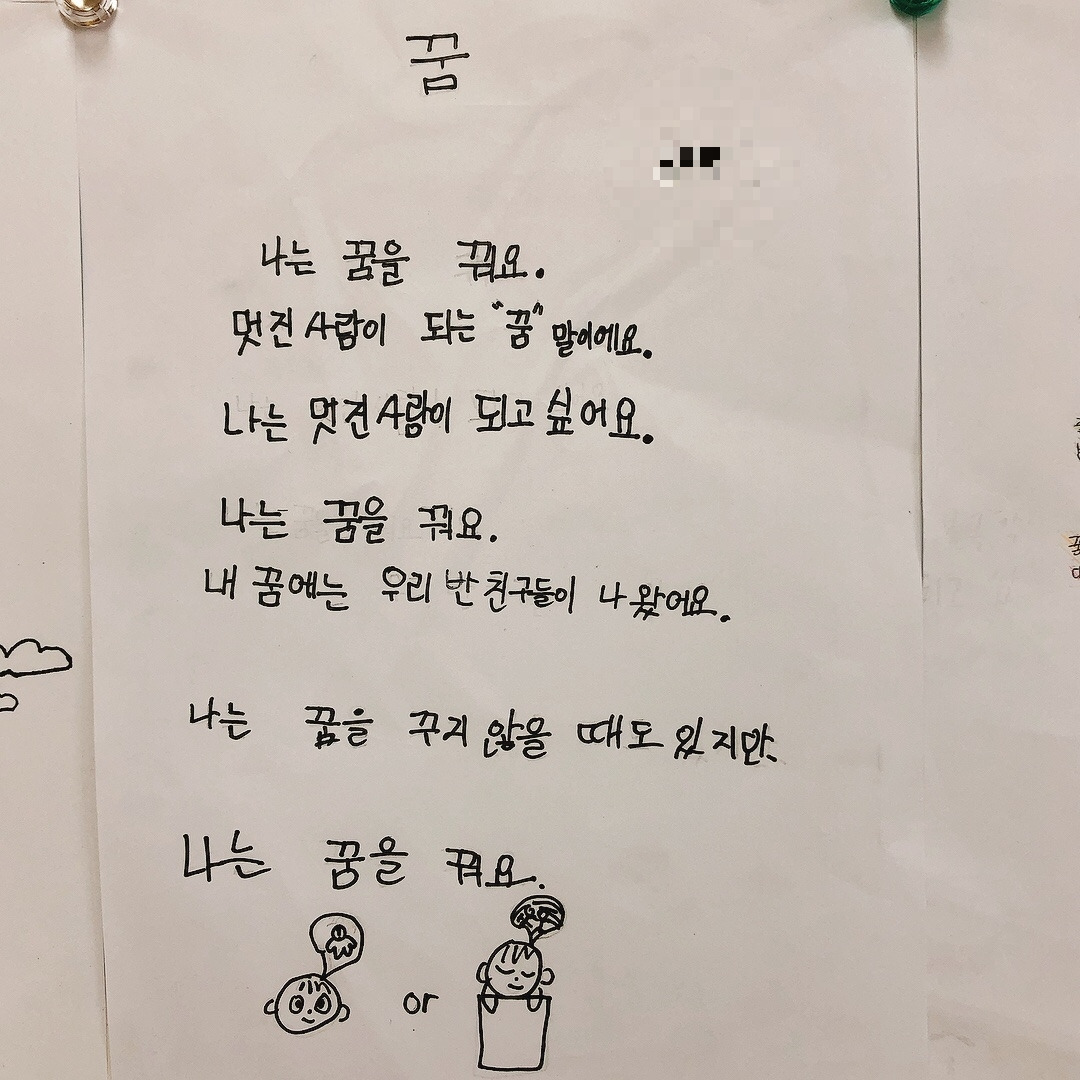 꿈
나는 꿈을 꿔요.
멋진 사람이 되는 "꿈" 말이에요.
나는 멋진 사람이 되고 싶어요.
나는 꿈을 꿔요.
내 꿈에는 우리 반 친구들이 나왔어요.
나는 꿈을 꾸지 않을 때도 있지만,
나는 꿈을 꿔요.
or